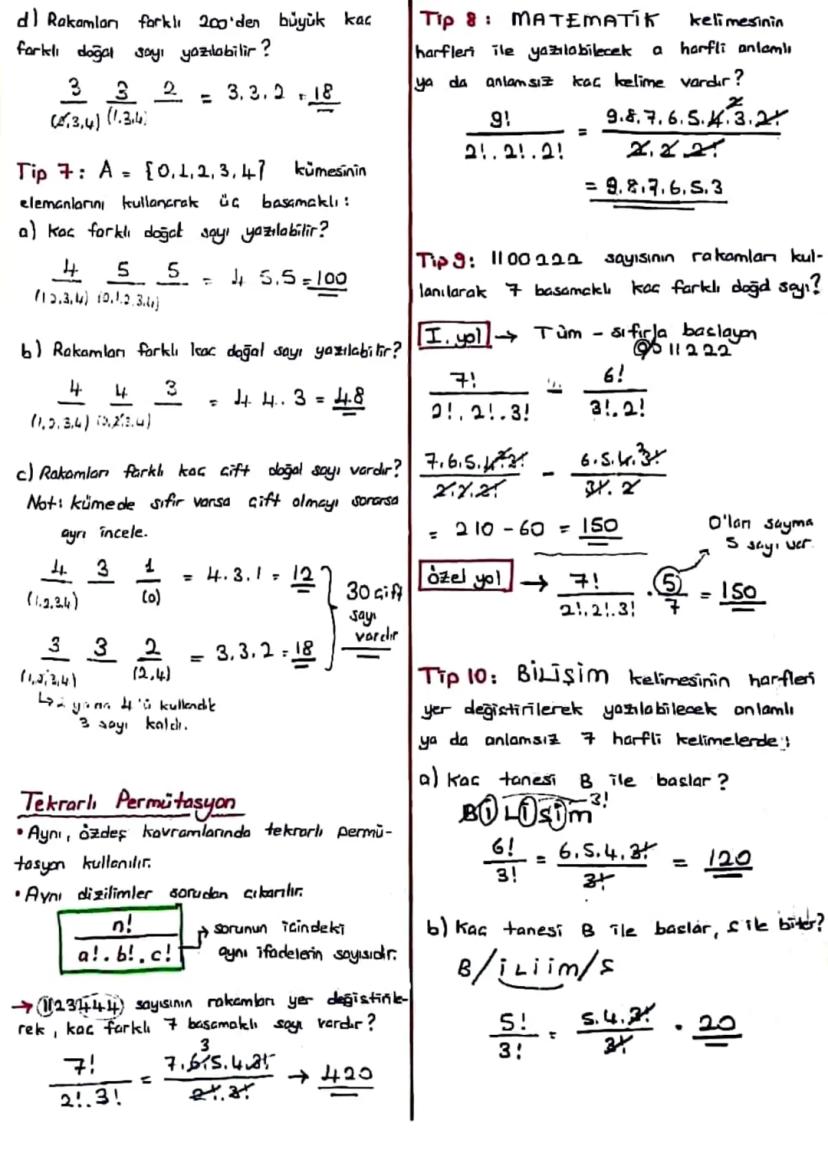 d) Rakamları farklı 200'den büyük kaç
farklı doğal sayı yazılabilir?
3 3 2 = 3.3.2 = 18
(2,3,4) (1,3,4)
Tip 7: A = {0,1,2,3,4} kümesinin
elemanlarını kullanarak üç basamaklı:
a) Kaç farklı doğal sayı yazılabilir?
4 5 5 = 4 5.5 = 100
(1,2,3,4) (0,1,2,3,4)
b) Rakamları farklı kaç doğal sayı yazılabilir?
4 4 3 = 4 4.. 3 = 48
(1,2,3,4) (0,2,3,4)
c) Rakamları farklı kaç çift doğal sayı vardır?
Not: Kümede sıfır varsa çift olmayı sorarsa
ayrı incele.
4 3 1 = 4.3.1 = 12
(1,2,3,4) (0)
30 çift
sayı
vardır
3 3 2 = 3.3.2 = 18
(1,2,3,4) (2,4)
↳ 2 ya na 4'ü kullandık
3 sayı kaldı.
Tekrarlı Permütasyon
• Aynı, özdeş kavramlarında tekrarlı permü-
tasyon kullanılır.
• Aynı dizilimler sorudan çıkarılır.
n!
a!.b!.c!
→ sorunun içindeki
aynı ifadelerin sayısıdır.
→ 1123444 sayısının rakamları yer değiştirile-
rek, kaç farklı 7 basamaklı sayı vardır?
3
7! = 7.6.5.4.3! → 420
2!.3! 2!.3!
Tip 8: MATEMATİK kelimesinin
harfleri ile yazılabilecek a harfli anlamlı
ya da anlamsız kaç kelime vardır?
2
9! = 9.8.7.6.5.4.3.2!
2!.2!.2! 2.2.2!
= 9.8.7.6.5.3
Tip 9: 1100222 sayısının rakamları kul-
lanılarak 7 basamaklı kaç farklı doğal sayı?
I. yol → Tüm - sıfırla başlayan
0011222
7! - 6!
2!.2!.3! 3!.2!
7.6.5.4.3! - 6.5.4.3!
2.2.3! 3!.2
= 210 - 60 = 150
0'ları sayma
5 sayı var
özel yol → 7! . 5 = 150
2!.2!.3! 7
Tip 10: BİLİŞİM kelimesinin harfleri
yer değiştirilerek yazılabilecek anlamlı
ya da anlamsız 7 harfli kelimelerde;
a) Kaç tanesi B ile başlar?
BİLİŞİM 3!
6! = 6.5.4.3! = 120
3! 3!
b) Kaç tanesi B ile başlar, Ş ile biter?
B/İLİİM/Ş
5! = 5.4.3! = 20
3! 3!